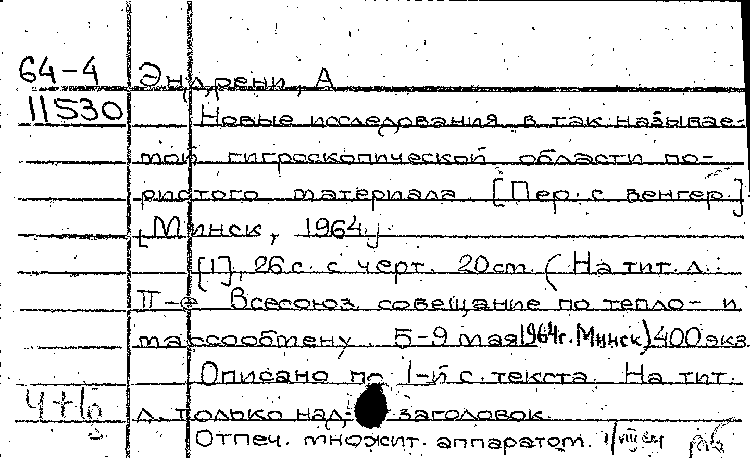 64-4 Эндрени, А
11530 Новые исследования в так называе-
мой гигроскопической области по-
ристого материала [Пер. с венгер.]
[Минск, 1964]
[1], 26 с. с черт. 20 см (На тит. л.:
II-е Всесоюз. совещание по тепло- и
массообмену. 5-9 мая 1964г. Минск) 400 экз.
Описано по 1-й с. текста. На тит.
л. только над- заголовок.
Отпеч. множит. аппаратом.